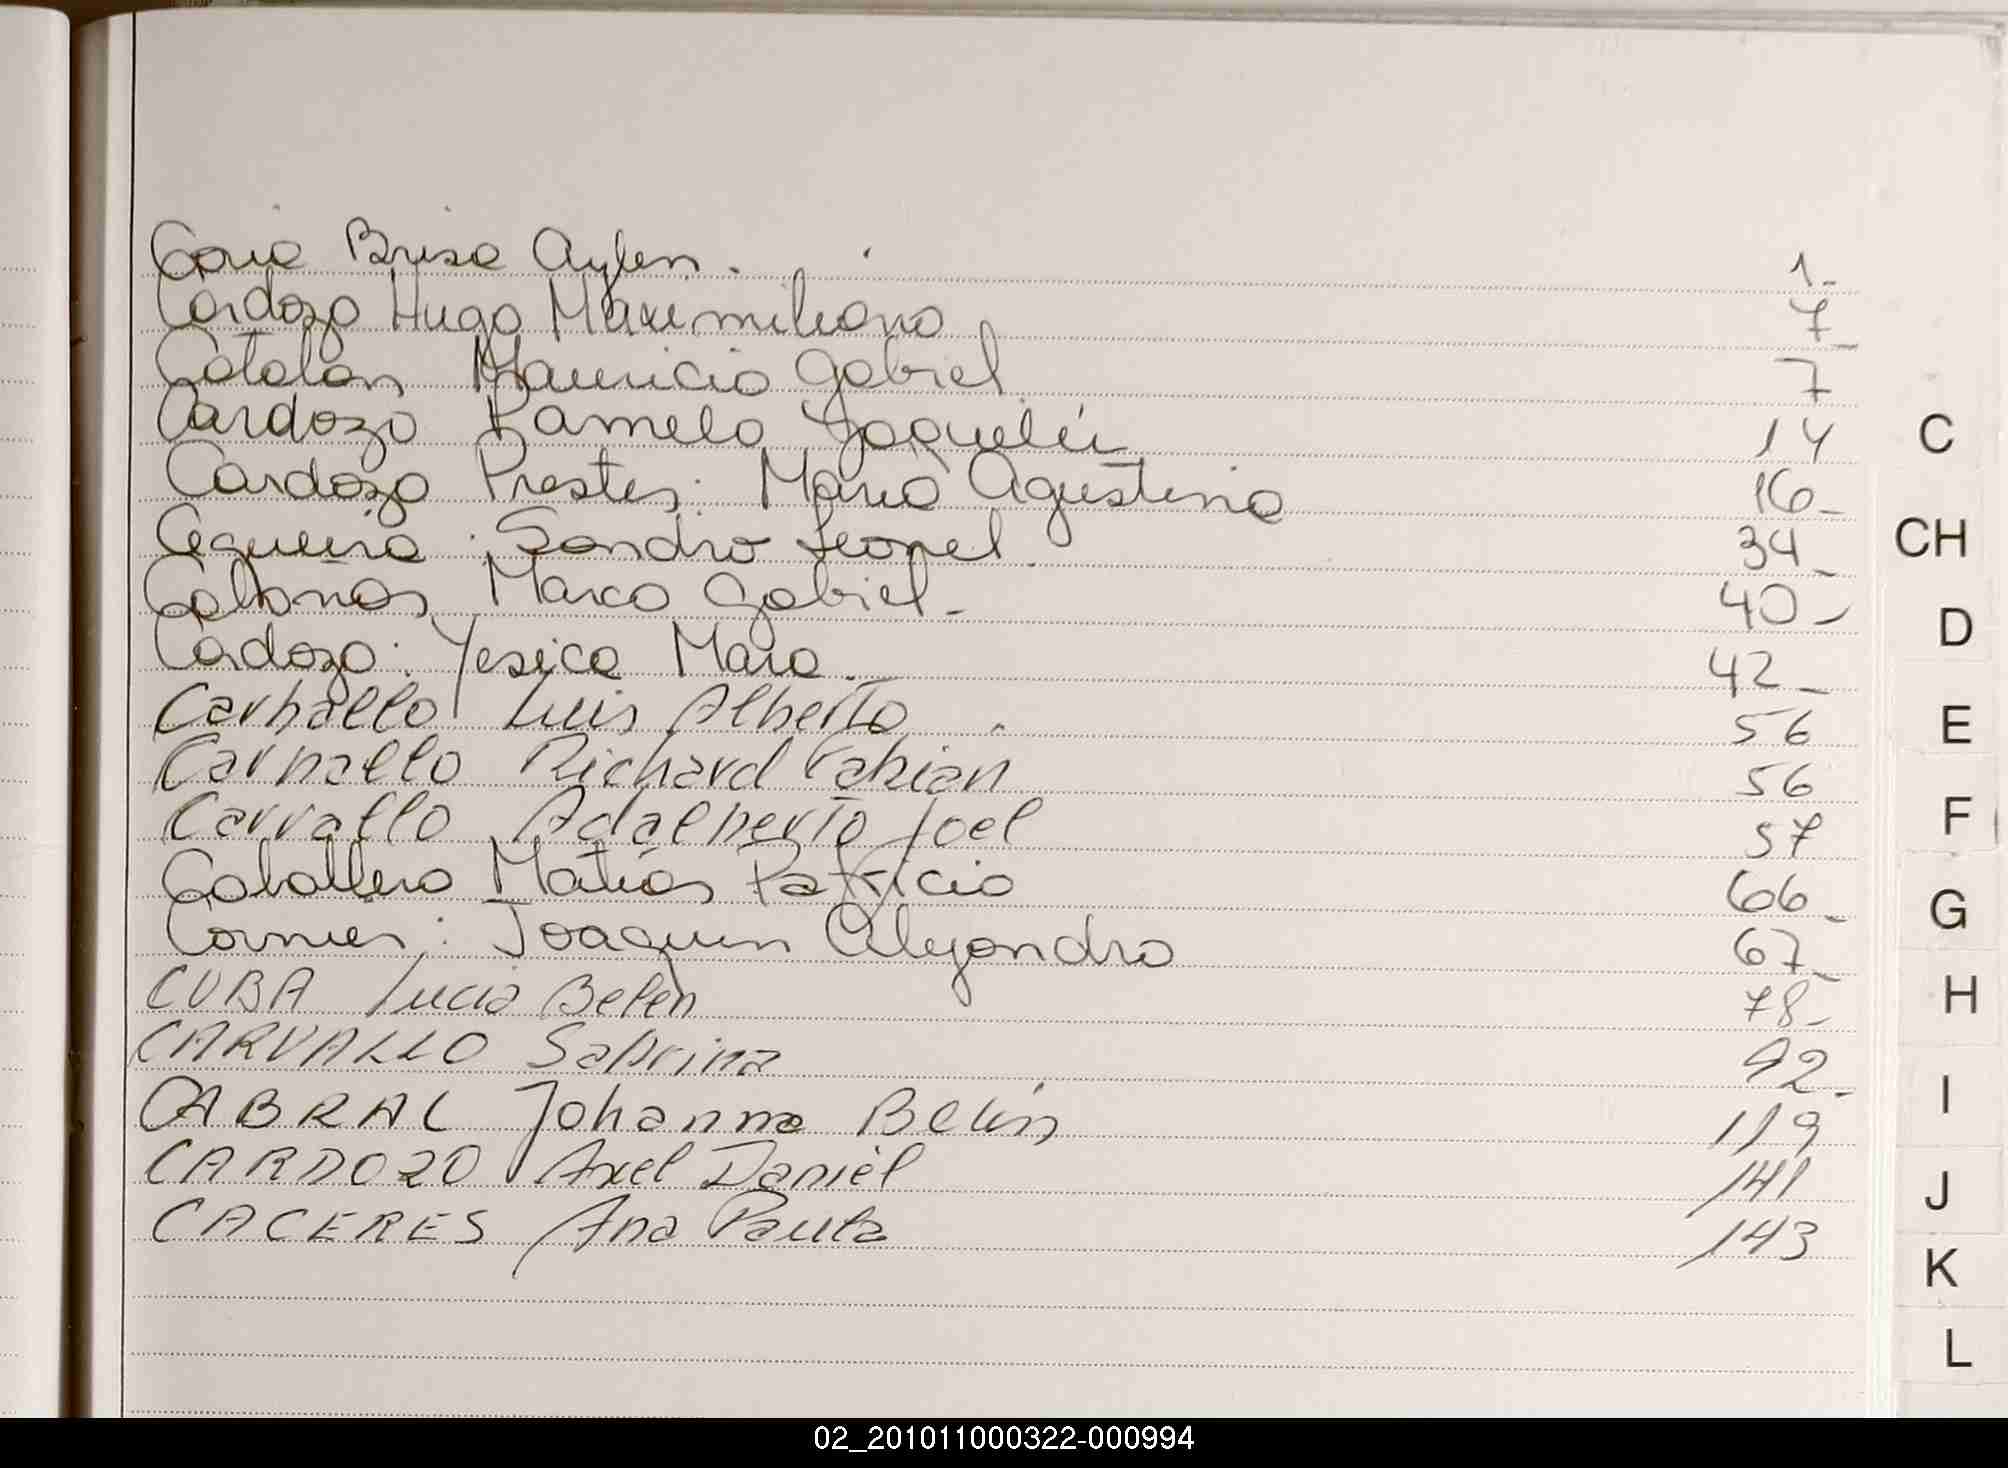 Coria Brisa Aylen. 1-
Cardozo Hugo Maximiliano 7-
Catalan Mauricio Gabriel 7
Cardozo Pamela Jaquelin 14
Cardozo Prestes. Maria Agustina 16-
Cequeira. Sandro Leonel 34-
Cabañas Marco Gabriel - 40-
Cardozo. Yesica Mara. 42-
Carballo Luis Alberto 56
Carballo Richard Fabian 56
Carvallo Adalberto Joel 57
Caballero Matias Patricio 66-
Joaquin Alejandro 67-
CUBA Lucia Belen 78-
CARVALLO Sabrina 92-
CABRAL Johanna Belén 119
CARDOZO Axel Daniel 141
CACERES Ana Paula 143
C
CH
D
E
F
G
H
I
J
K
L
02_201011000322-000994